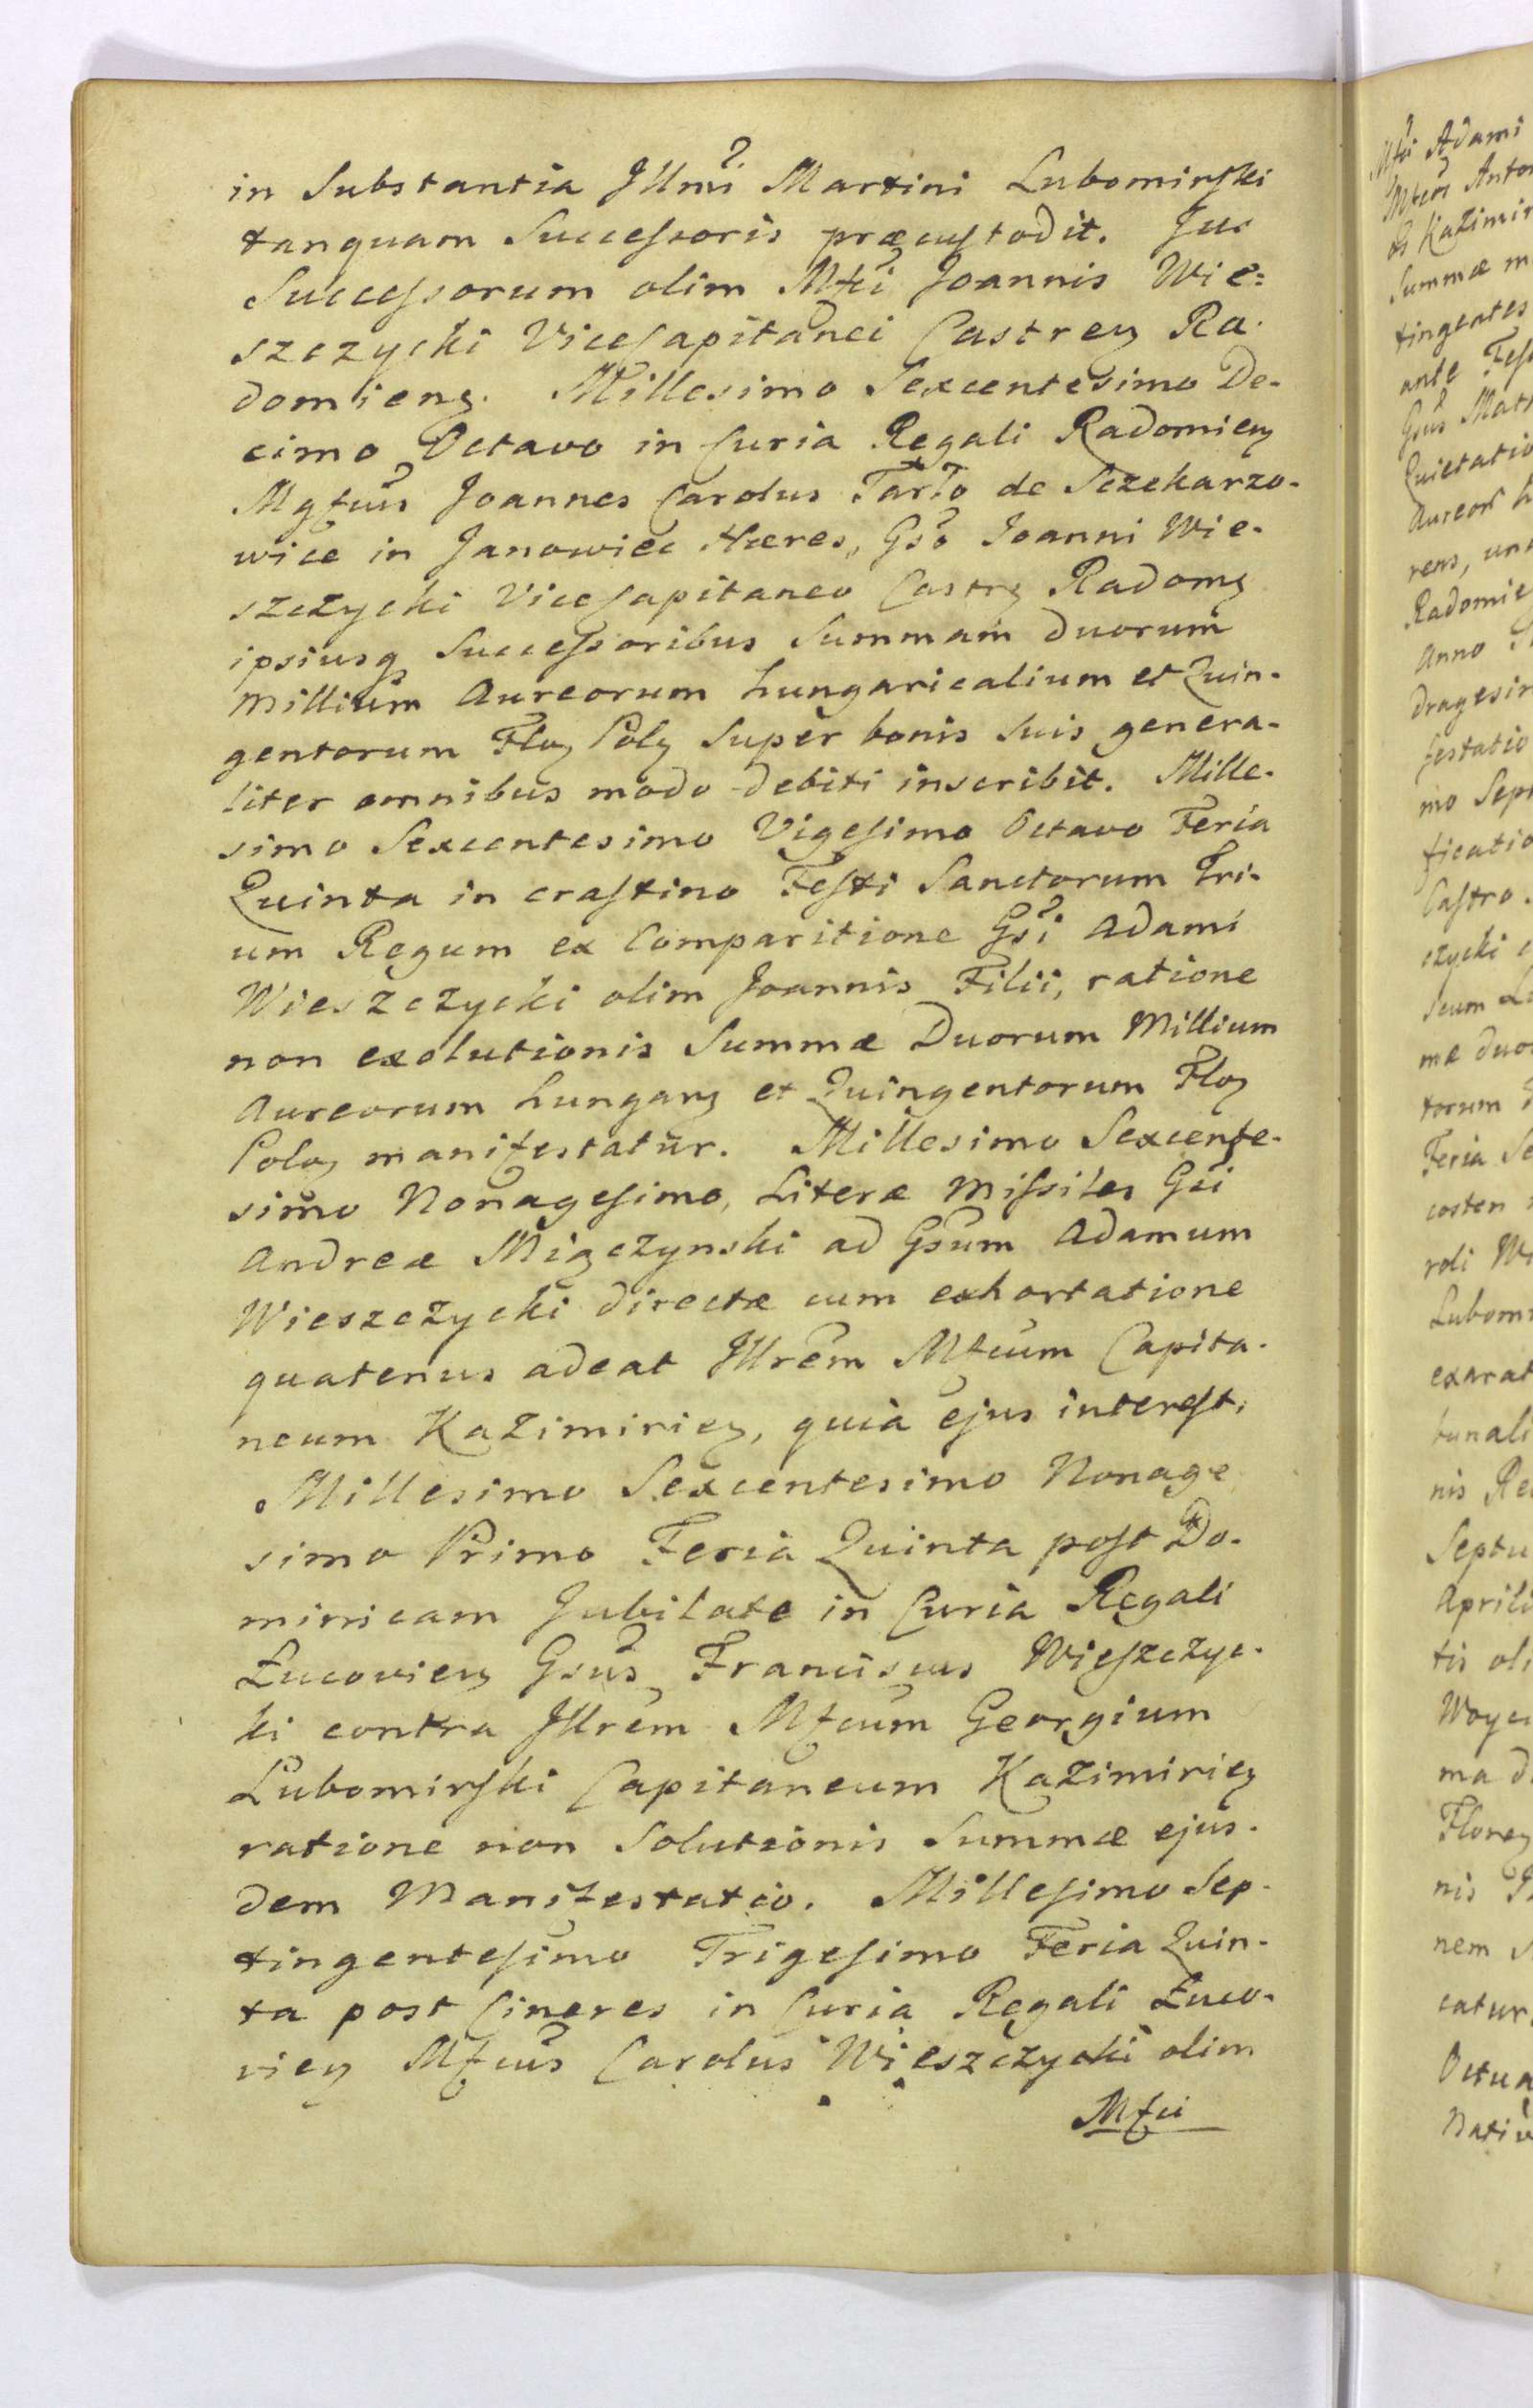 in Substantia Jllmi Martini Lubomirski
tanquam Successoris præcustodit. Jus
Successorum olim Mfci Joannis Wie=
szczycki ViceCapitanei Castren Ra-
domien. Millesimo Sexcentesimo De-
cimo Octavo in Curia Regali Radomien
Mgfcus Joannes Carolus Tarło de Sczekarzo-
wice in Janowiec Hæres, Gso Joanni Wie-
szczycki ViceCapitaneo Castr Radom
ipsiusq Successoribus Summam duorum
Millium Aureorum hungaricalium et Quin-
gentorum Flo Pol Super bonis suis genera-
liter omnibus modo debiti inscribit. Mille-
simo Sexcentesimo Vigesimo Octavo Feria
Quinta in crastino Festi Sanctorum Tri-
um Regum ex Comparitione Gsi Adami
Wieszczycki olim Joannis Filii, ratione
non exolutionis Summæ Duorum Millium
Aureorum hungar et Quingentorum Flo
Polo manifestatur. Millesimo Sexcente-
simo Nonagesimo, Literæ Missiles Gsi
Andreæ Miączynski ad Gsum Adamum
Wieszczycki directæ cum exhortatione
quatenus adeat Jllrem Mfcum Capita-
neum Kazimirien, quia ejus interest.
Millesimo Sexcentesimo Nonage
simo Primo Feria Quinta post Do-
minicam Jubilate in Curia Regali
Łucovien Gsus Franciscus Wieszczyc-
ki contra Jllrem Mfcum Georgium
Lubomirski Capitaneum Kazimirien
ratione non Solutionis Summæ ejus-
dem Manifestatio. Millesimo Sep-
tingentesimo Trigesimo Feria Quin-
ta post Cineres in Curia Regali Łuco-
vien Mfcus Carolus Wieszczycki olim
Mfci